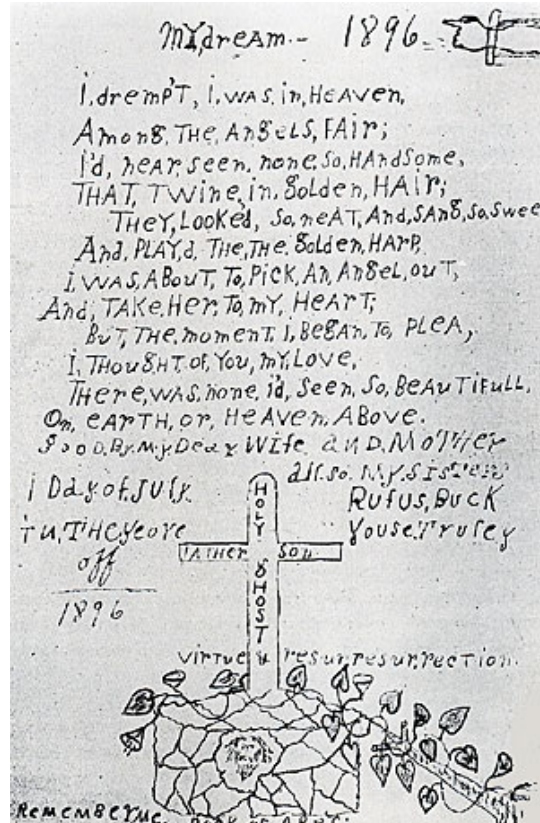 MY,dream.- 1896.
i,drempT, i,wAS,in,HEAVen,
Among,THE,AngeLS,FAir;
i'd,neAr,seen,none,so,HAndsome,
THAT,TWine,in,golden,HAir;
THeY,LOOKed,So,neAT,And,SAng,So,Swee
And,PLAY,d,THe,THe,golden,HArp,
i,wAS,ABouT,To,Pick,An,Angel,ouT,
And,TAKe,Her,To,mY,HeArT;
BuT,THe,momenT,i,BegAn,To,PLeA,
i,THougHT,of,You,mY,Love,
THere,wAS,none,i'd,Seen,So,BeAuTifuLL,
On,eArTH,or,HeAven,ABove.
gooD,By,My,Dear,Wife,anD,MoTHer
all.so.My.sisTers
i DAy.of.JuLy.
Rufus,Buck
iu,THe,yeore
youse.Truley
off
1896
HOLY GHOST
FATHer Son
virTue & resur.resurrecTion.
RememBer,me,